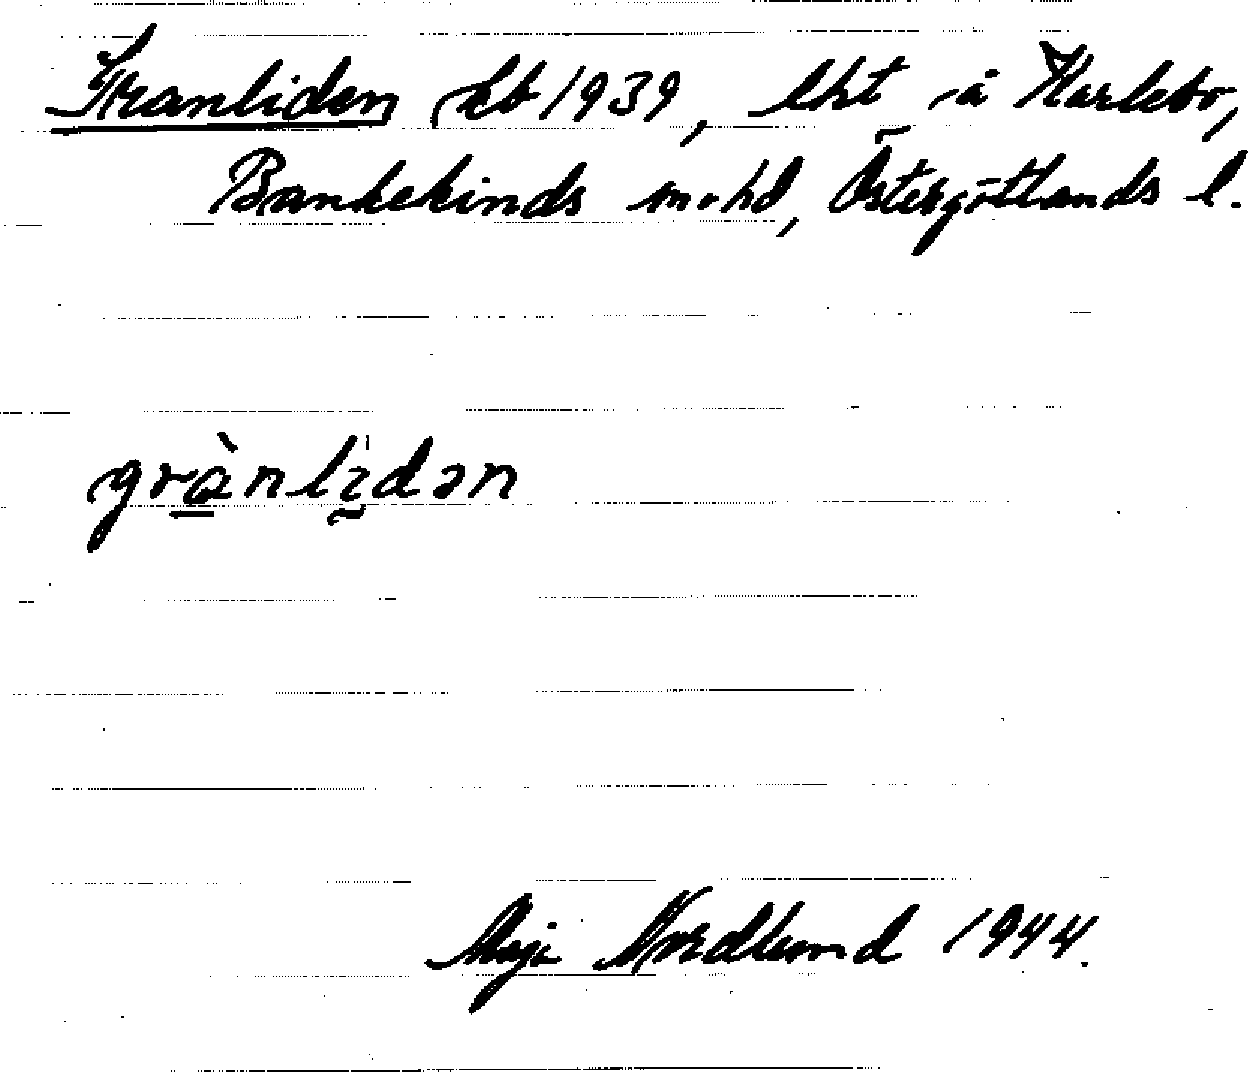 Granliden Jb 1939, lht å Karlebo,
Bankekinds sn o. hd, Östergötlands l.
grànlìdən
Maja Nordlund 1944.